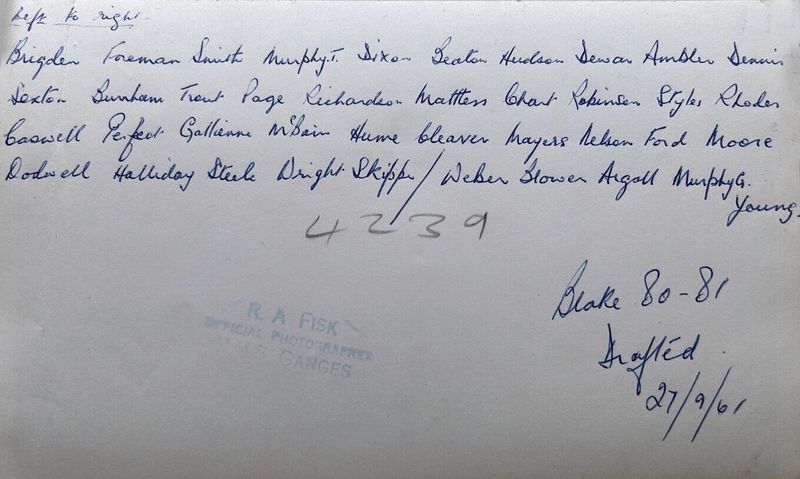 Left to right
Brigden Foreman Smith Murphy.T. Dixon Seaton Hudson Dewar Ambler Dennis
Sexton Burnham Trout Page Richardson Mattless Chart Robinson Styles Rhodes
Caswell Perfect Gallienne McBain Hume Cleaver Mayers Nelson Ford Moore
Dodwell Halliday Steele Wright Skipp / Weber Blower Argall Murphy G.
Young.
4239
R. A FISK
OFFICIAL PHOTOGRAPHER
H.M.S. GANGES
Blake 80-81
Drafted
27/9/61